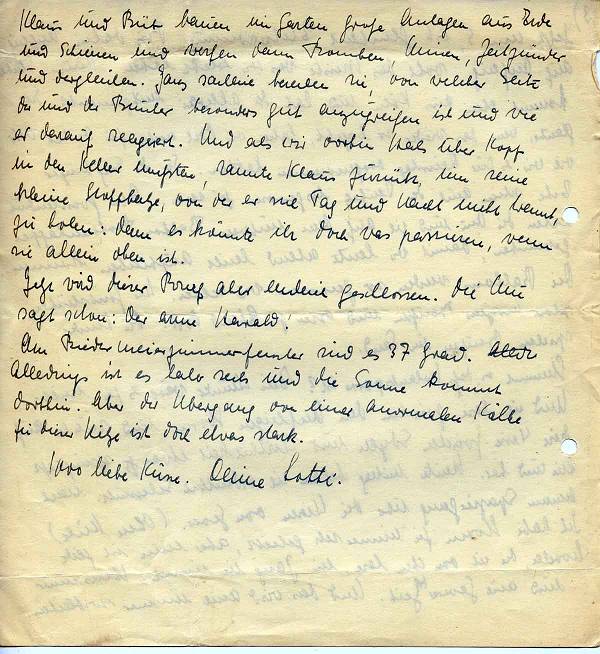 Klaus und Büb bauen im Garten große Anlagen aus Erde
und Schienen und werfen dann Bomben, Minen, Zeitzünder
und dergleichen. Ganz sachlich bereden sie, von welcher Seite
der und der Bunker besonders gut anzugreifen ist und wie
er darauf reagiert. Und als wir vorhin Hals über Kopf
in den Keller mußten, rannte Klaus zurück, um seine
kleine Stoffkatze, von der er sich Tag und Nacht nicht trennt,
zu holen: denn es könnte ihr doch was passieren, wenn
sie allein oben ist.
Jetzt wird dieser Brief aber endlich geschlossen. Die
sagt schon: Der arme Harald!
Am Biedermeierzimmerfenster sind es 37 Grad.
Allerdings ist es halb sechs und die Sonne kommt
dorthin. Aber der Übergang von einer anormalen Kälte
zu dieser Hitze ist doch etwas stark.
1000 liebe Küsse. Deine Lotti.